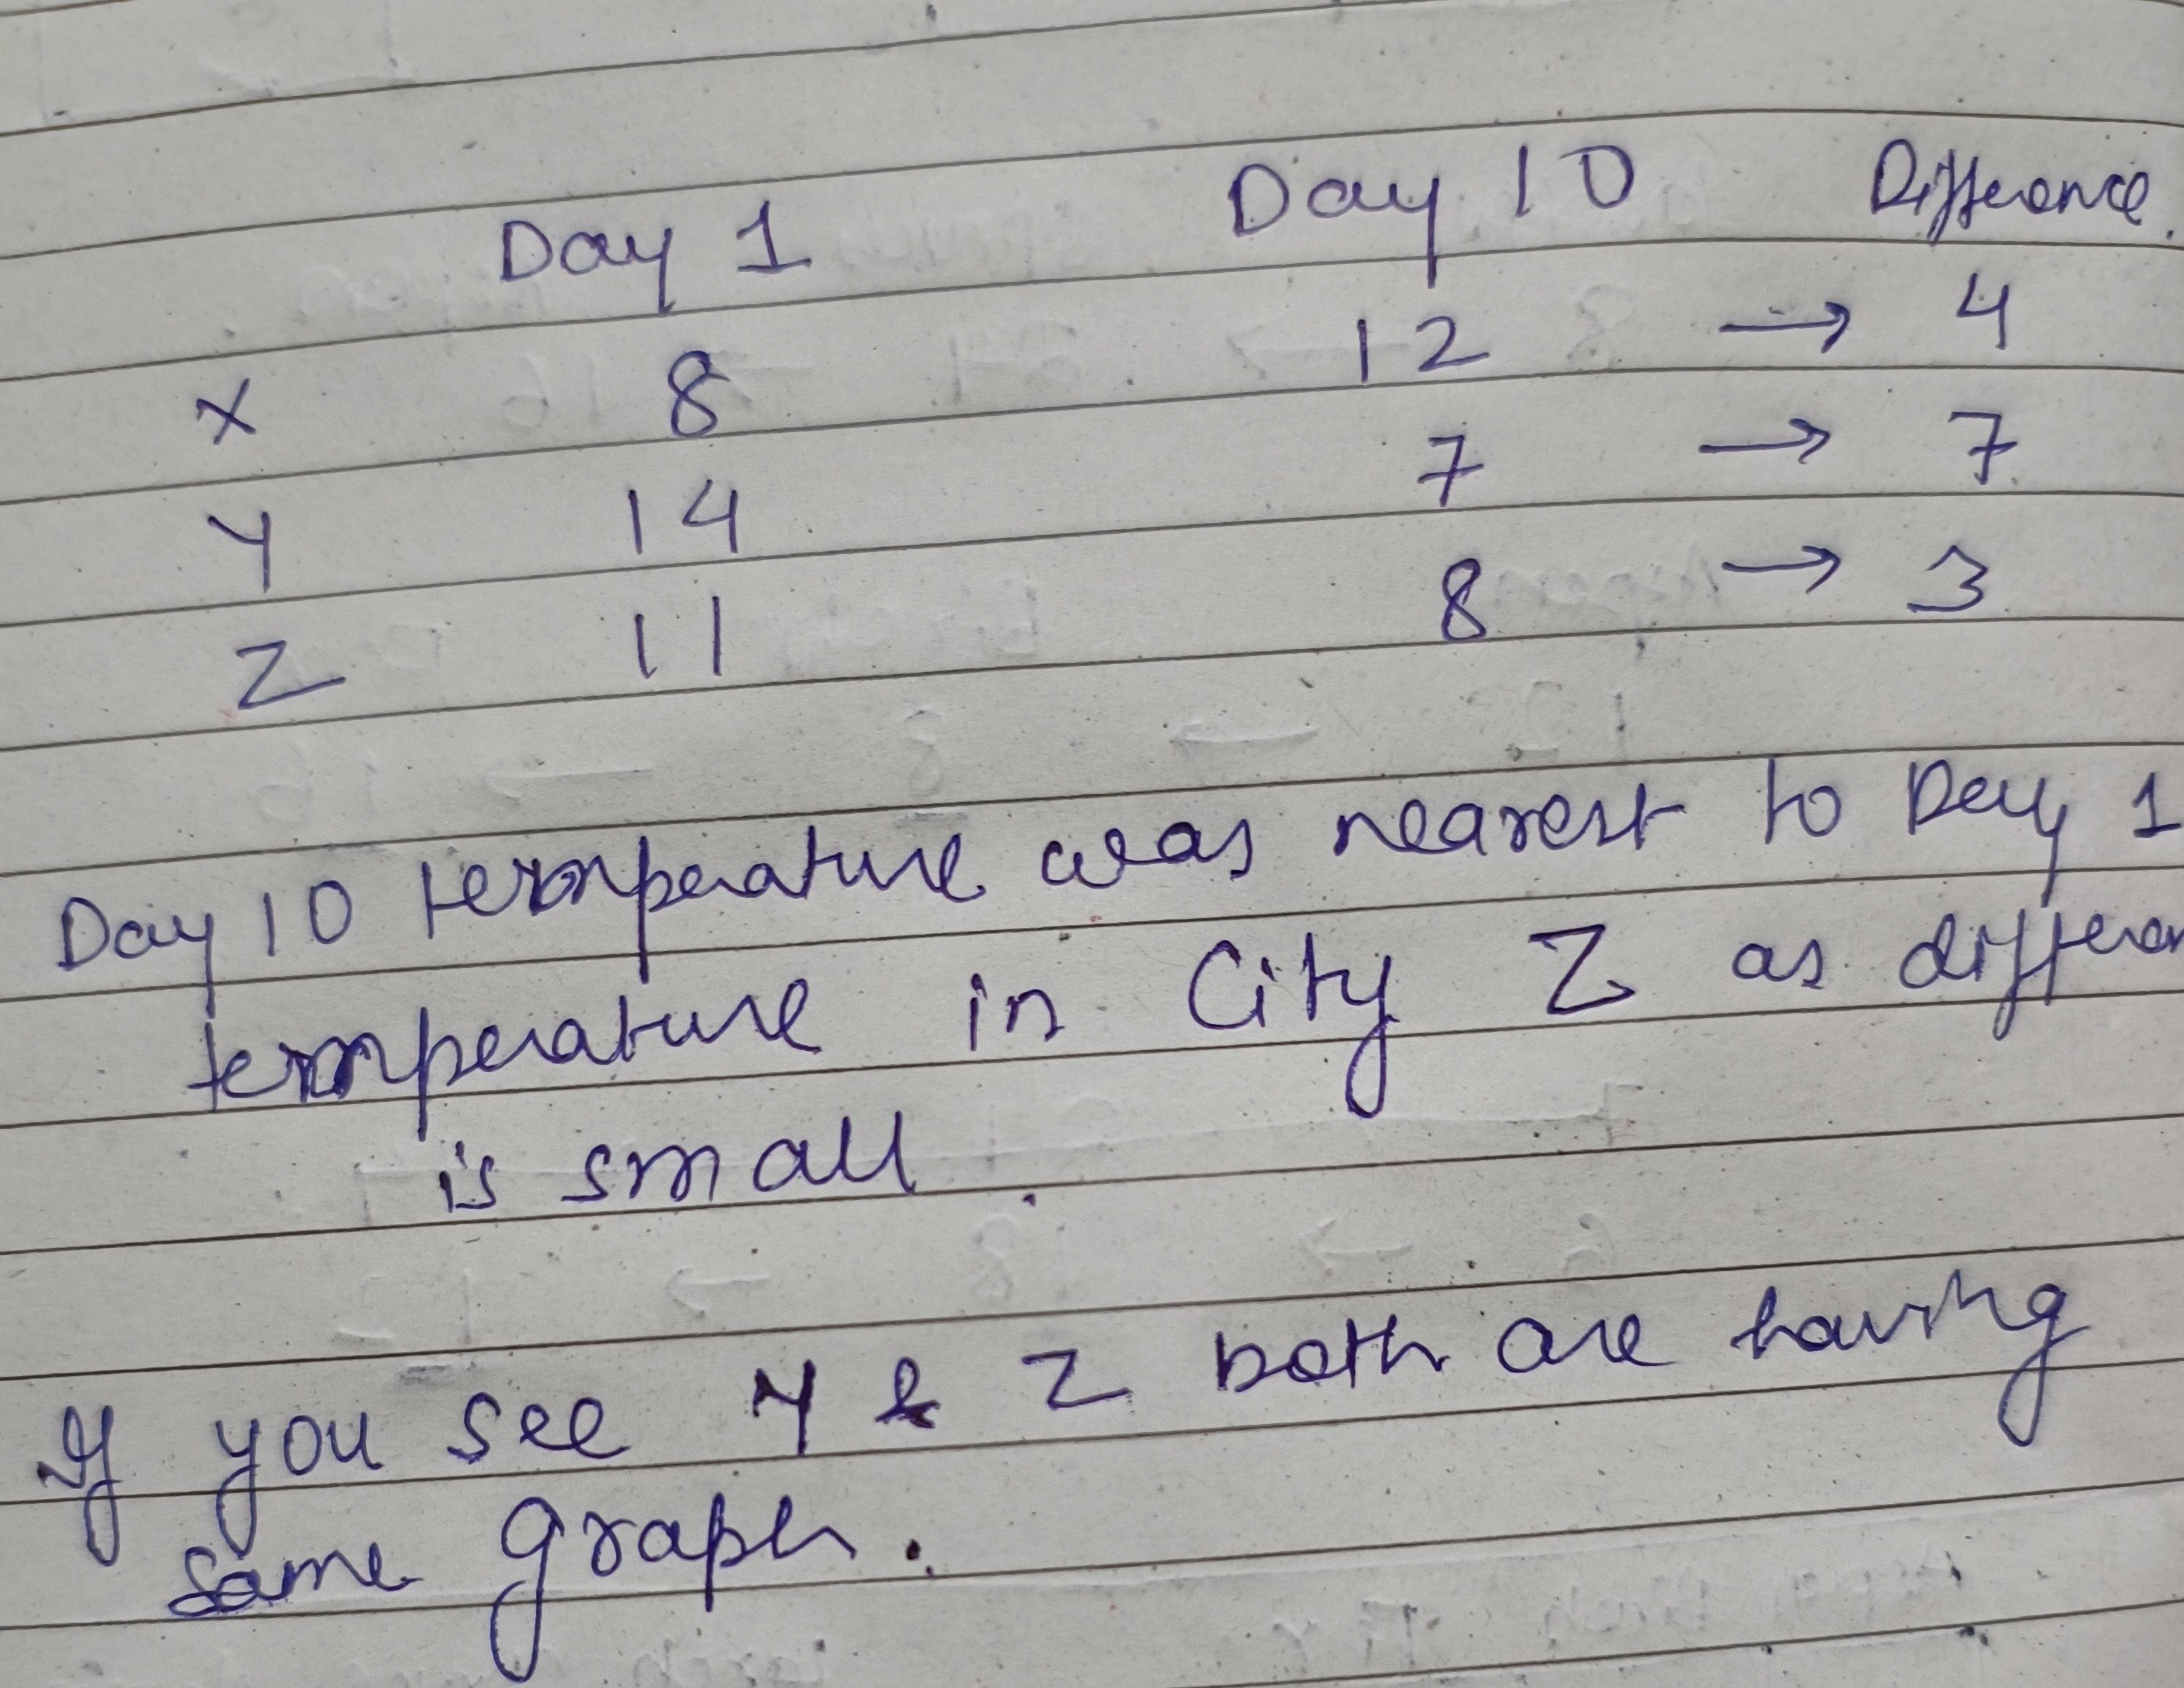 Day 1 Day 10 Difference.
X 8 12 → 4
Y 14 7 → 7
Z 11 8 → 3
Day 10 temperature was nearest to Day 1
temperature in City Z as differen
is small.
If you see Y & Z both are having
same graph.